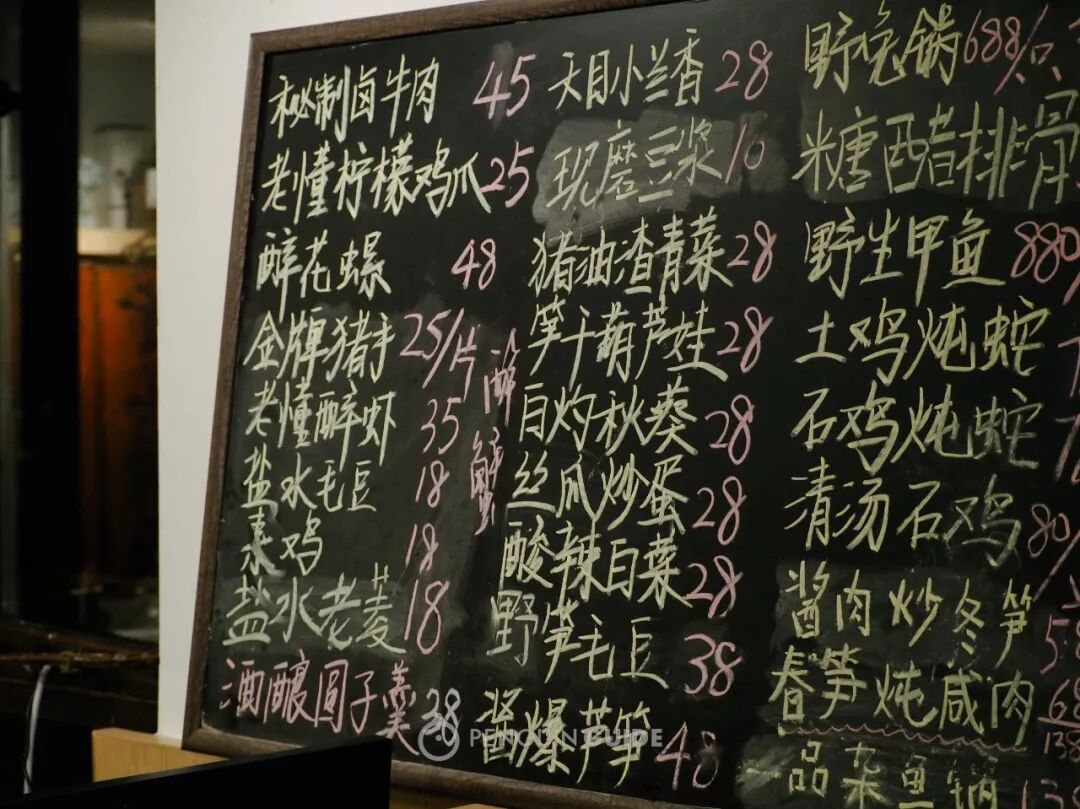 秘制卤牛肉 45
老懂柠檬鸡爪 25
醉花螺 48
金牌猪手 25/片
老懂醉虾 35
盐水毛豆 18
素鸡 18
盐水老菱 18
酒酿圆子羹 38
醉蟹
天目小兰香 28
现磨豆浆 16
猪油渣青菜 28
笋干葫芦娃 28
白灼秋葵 28
丝瓜炒蛋 28
酸辣白菜 28
野笋毛豆 38
酱爆芦笋 48
野兔锅 688/只
糖醋排骨
野生甲鱼 880
土鸡炖蛇
石鸡炖蛇
清汤石鸡 80/
酱肉炒冬笋 58
春笋炖咸肉 68
138
一品杂鱼锅 138
PENGUIN GUIDE